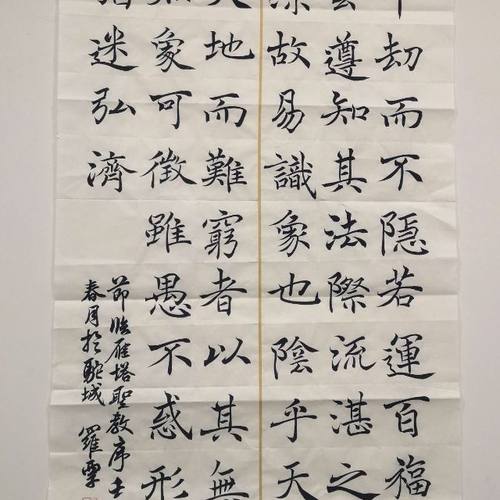 劫而不隱若運百福
遵知其法際流湛之
故易識象也陰乎天
地而難窮者以其無
象可徵雖愚不惑形
迷弘濟
節臨雁塔聖教序
春月於駝城 羅